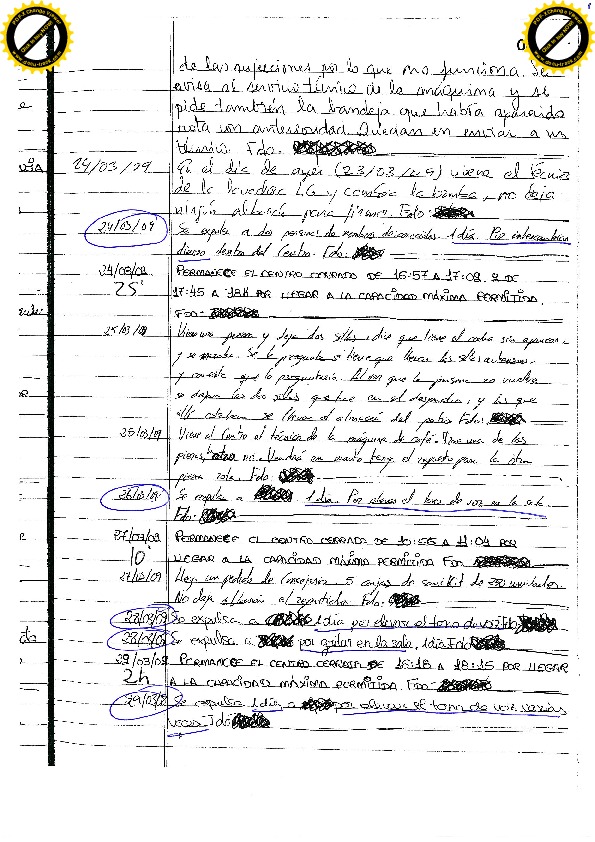 de las sujeciones por lo que no funciona. Se
avisa al servicio técnico de la máquina y se
pide también la bandeja que había aparecido
rota con anterioridad. Quedan en enviar a un
técnico. Fdo:
24/03/09 En el día de ayer (23/03/09) viene el técnico
de la lavadora LG y cambia la bomba, no deja
ningún albarán para firmar. Fdo:
24/03/09 Se expulsa a dos personas de nombres desconocidos 1 día. Por intercambiar
dinero dentro del Centro. Fdo:
24/03/09 PERMANECE EL CENTRO CERRADO DE 16:57 A 17:08 Y DE
25' 17:45 A 18H POR LLEGAR A LA CAPACIDAD MÁXIMA PERMITIDA.
FDO:
25/03/09 Viene una persona y deja dos sillas, dice que tiene el coche sin aparcar
y se marcha. Se le pregunta si tiene que llevar las sillas
y contesta que lo preguntaría. Al ver que la persona no vuelve
se dejan las dos sillas que hay en el despacho, y las que
allí estaban se llevan al almacén del patio. Fdo:
25/03/09 Viene al Centro el técnico de la máquina de café. Trae una de las
piezas, otra no. Vendrá en cuanto tenga el repuesto para la otra
pieza rota. Fdo:
26/03/09 Se expulsa a 1 día. Por elevar el tono de voz en la sala.
Fdo:
27/03/09 PERMANECE EL CENTRO CERRADO DE 10:55 A 11:04 POR
10' LLEGAR A LA CAPACIDAD MÁXIMA PERMITIDA FDO
27/03/09 Llega un pedido de Consejería 5 cajas de sanikit de 330 unidades.
No deja albarán el repartidor Fdo:
28/03/09 Se expulsa a 1 día por elevar el tono de voz Fdo
28/03/09 Se expulsa a por gritar en la sala, 1 día Fdo
29/03/09 PERMANECE EL CENTRO CERRADO DE 16:15 A 18:15 POR LLEGAR
2h A LA CAPACIDAD MÁXIMA PERMITIDA. FDO:
29/03/09 Se expulsa 1 día a por elevar el tono de voz varias
veces. Fdo